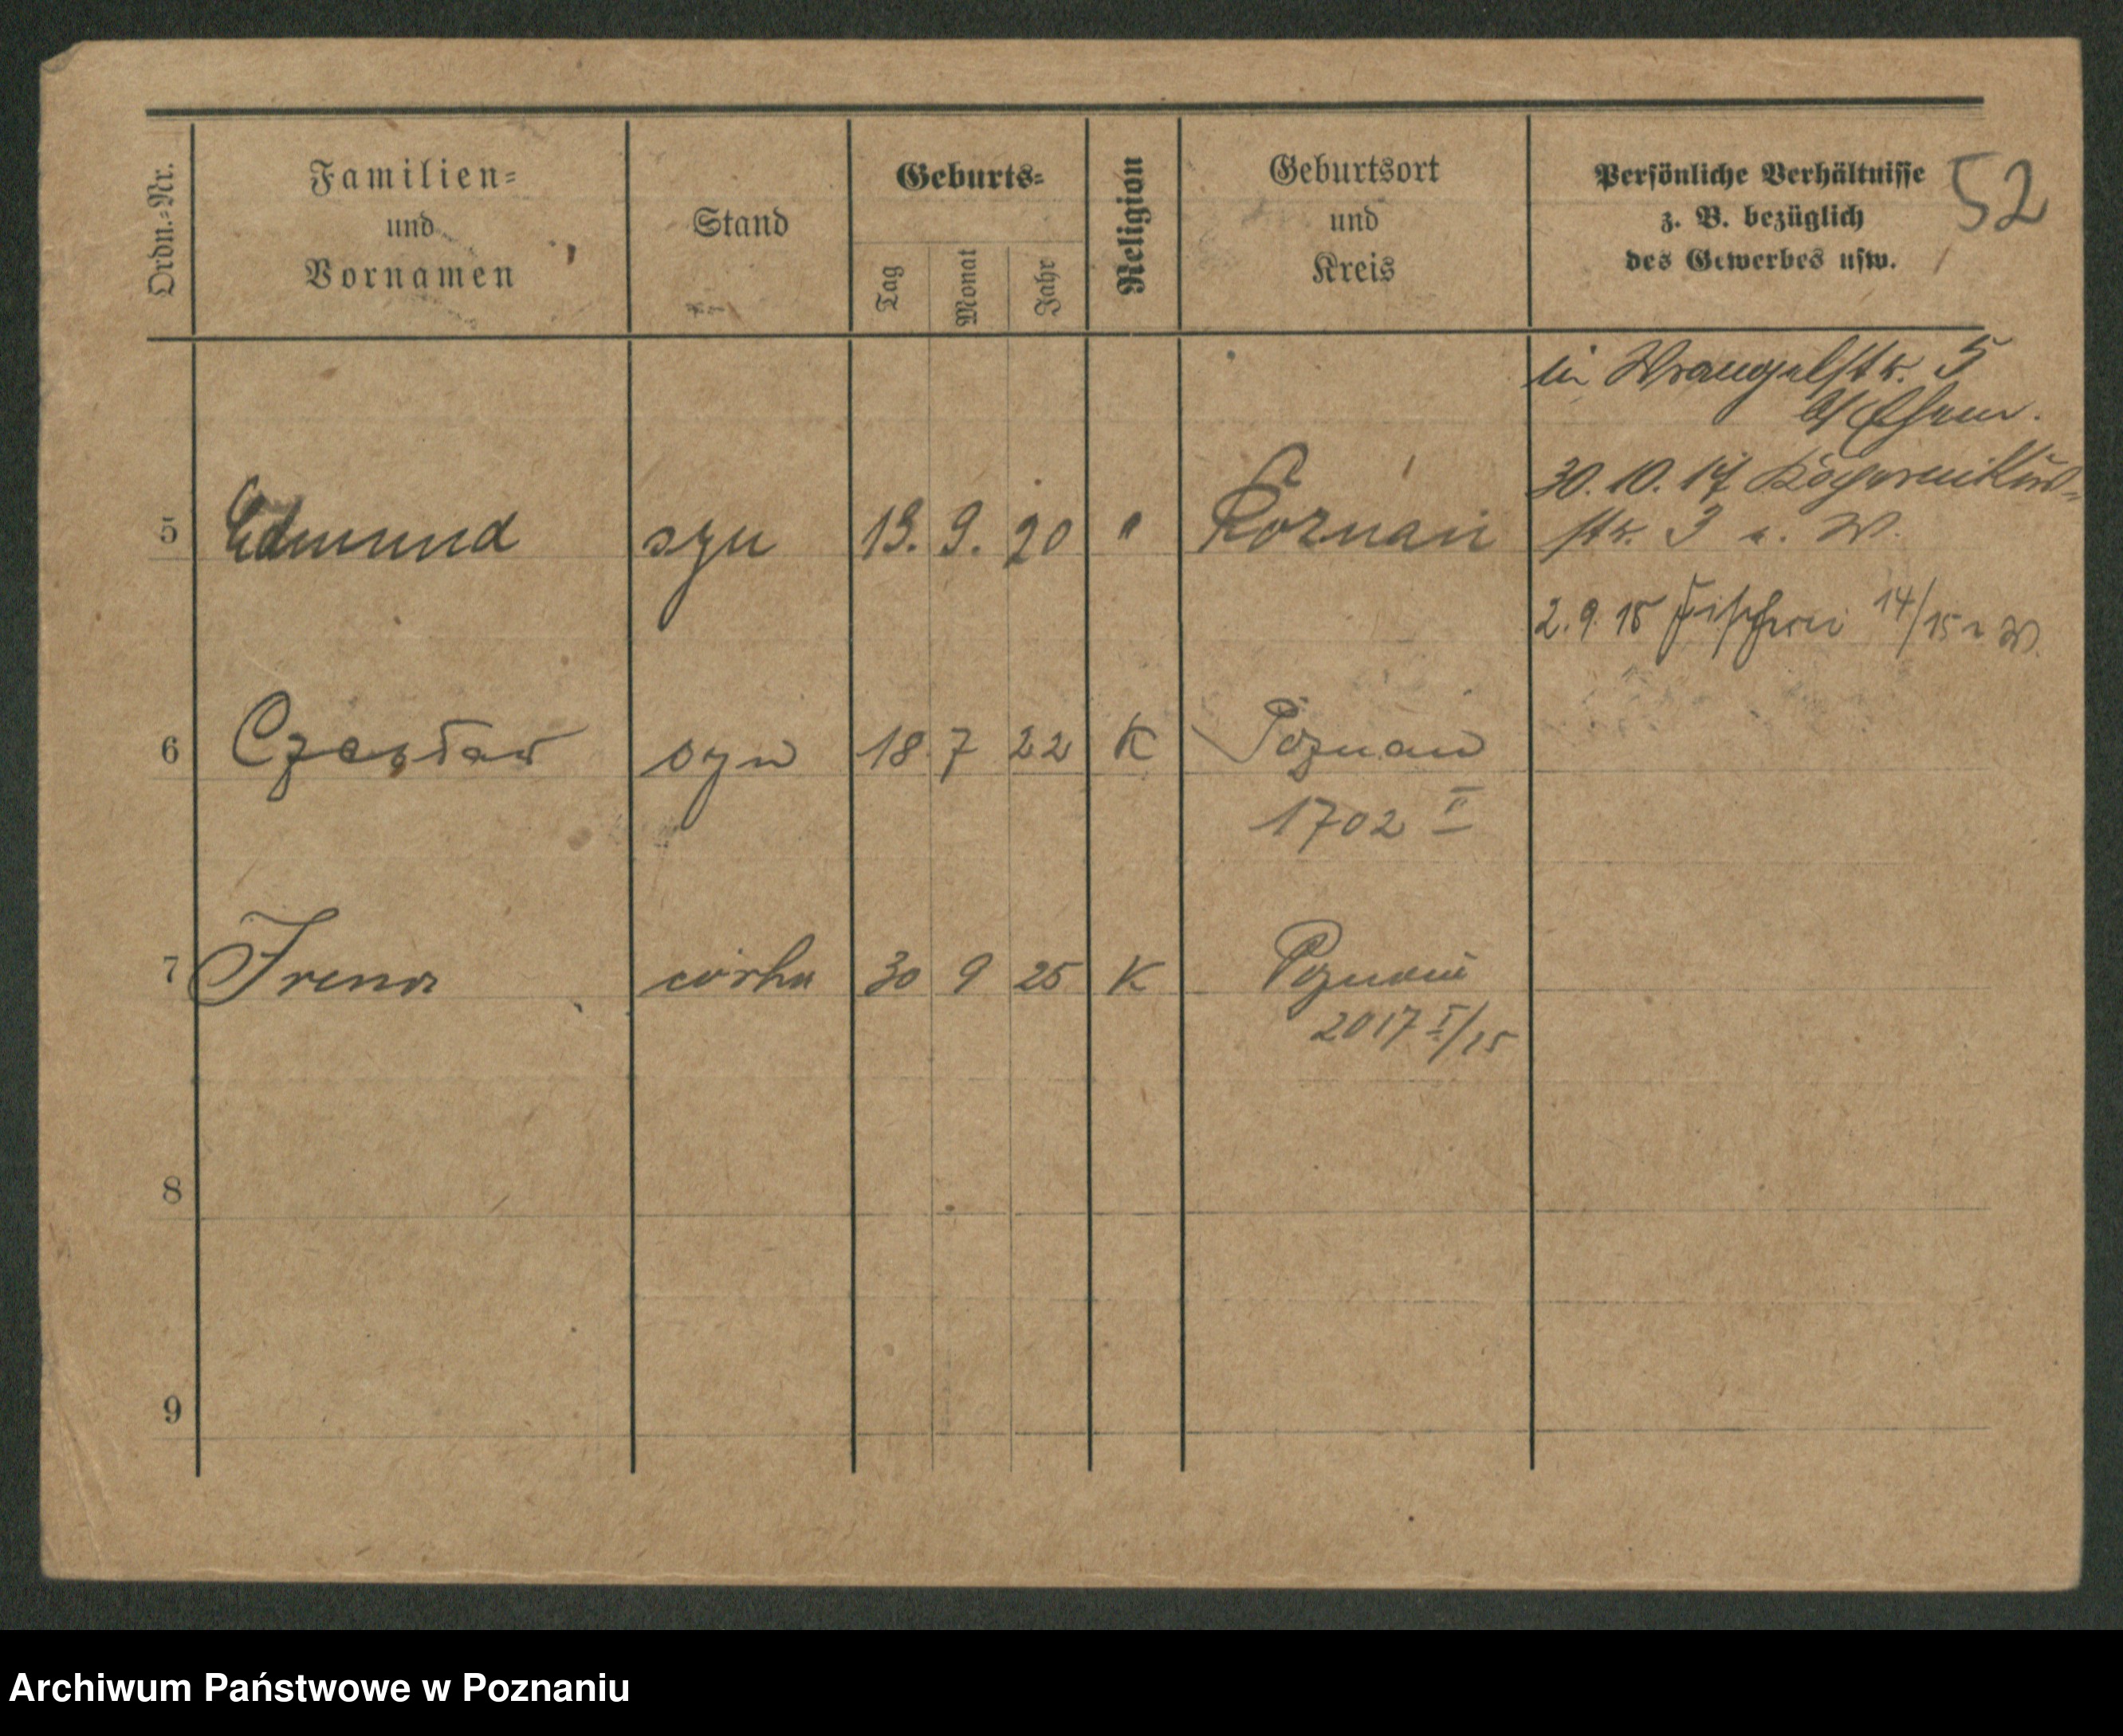 52
Ordn.=Nr.
Familien=
und
Vornamen
Stand
Geburts=
Tag Monat Jahr
Religion
Geburtsort
und
Kreis
Persönliche Verhältnisse
z. B. bezüglich
des Gewerbes usw.
in Wrangelstr. 5
30. 10. 17
str. 3 a. W.
5 Edmund syn 19. 9. 20 " Poznań
2. 9. 18 Fischerei 14/15 a W.
6 Czesław syn 18 7 22 K Poznań
1702 II
7 Irena córka 30 9 25 K Poznań
2017 I/25
8
9
Archiwum Państwowe w Poznaniu